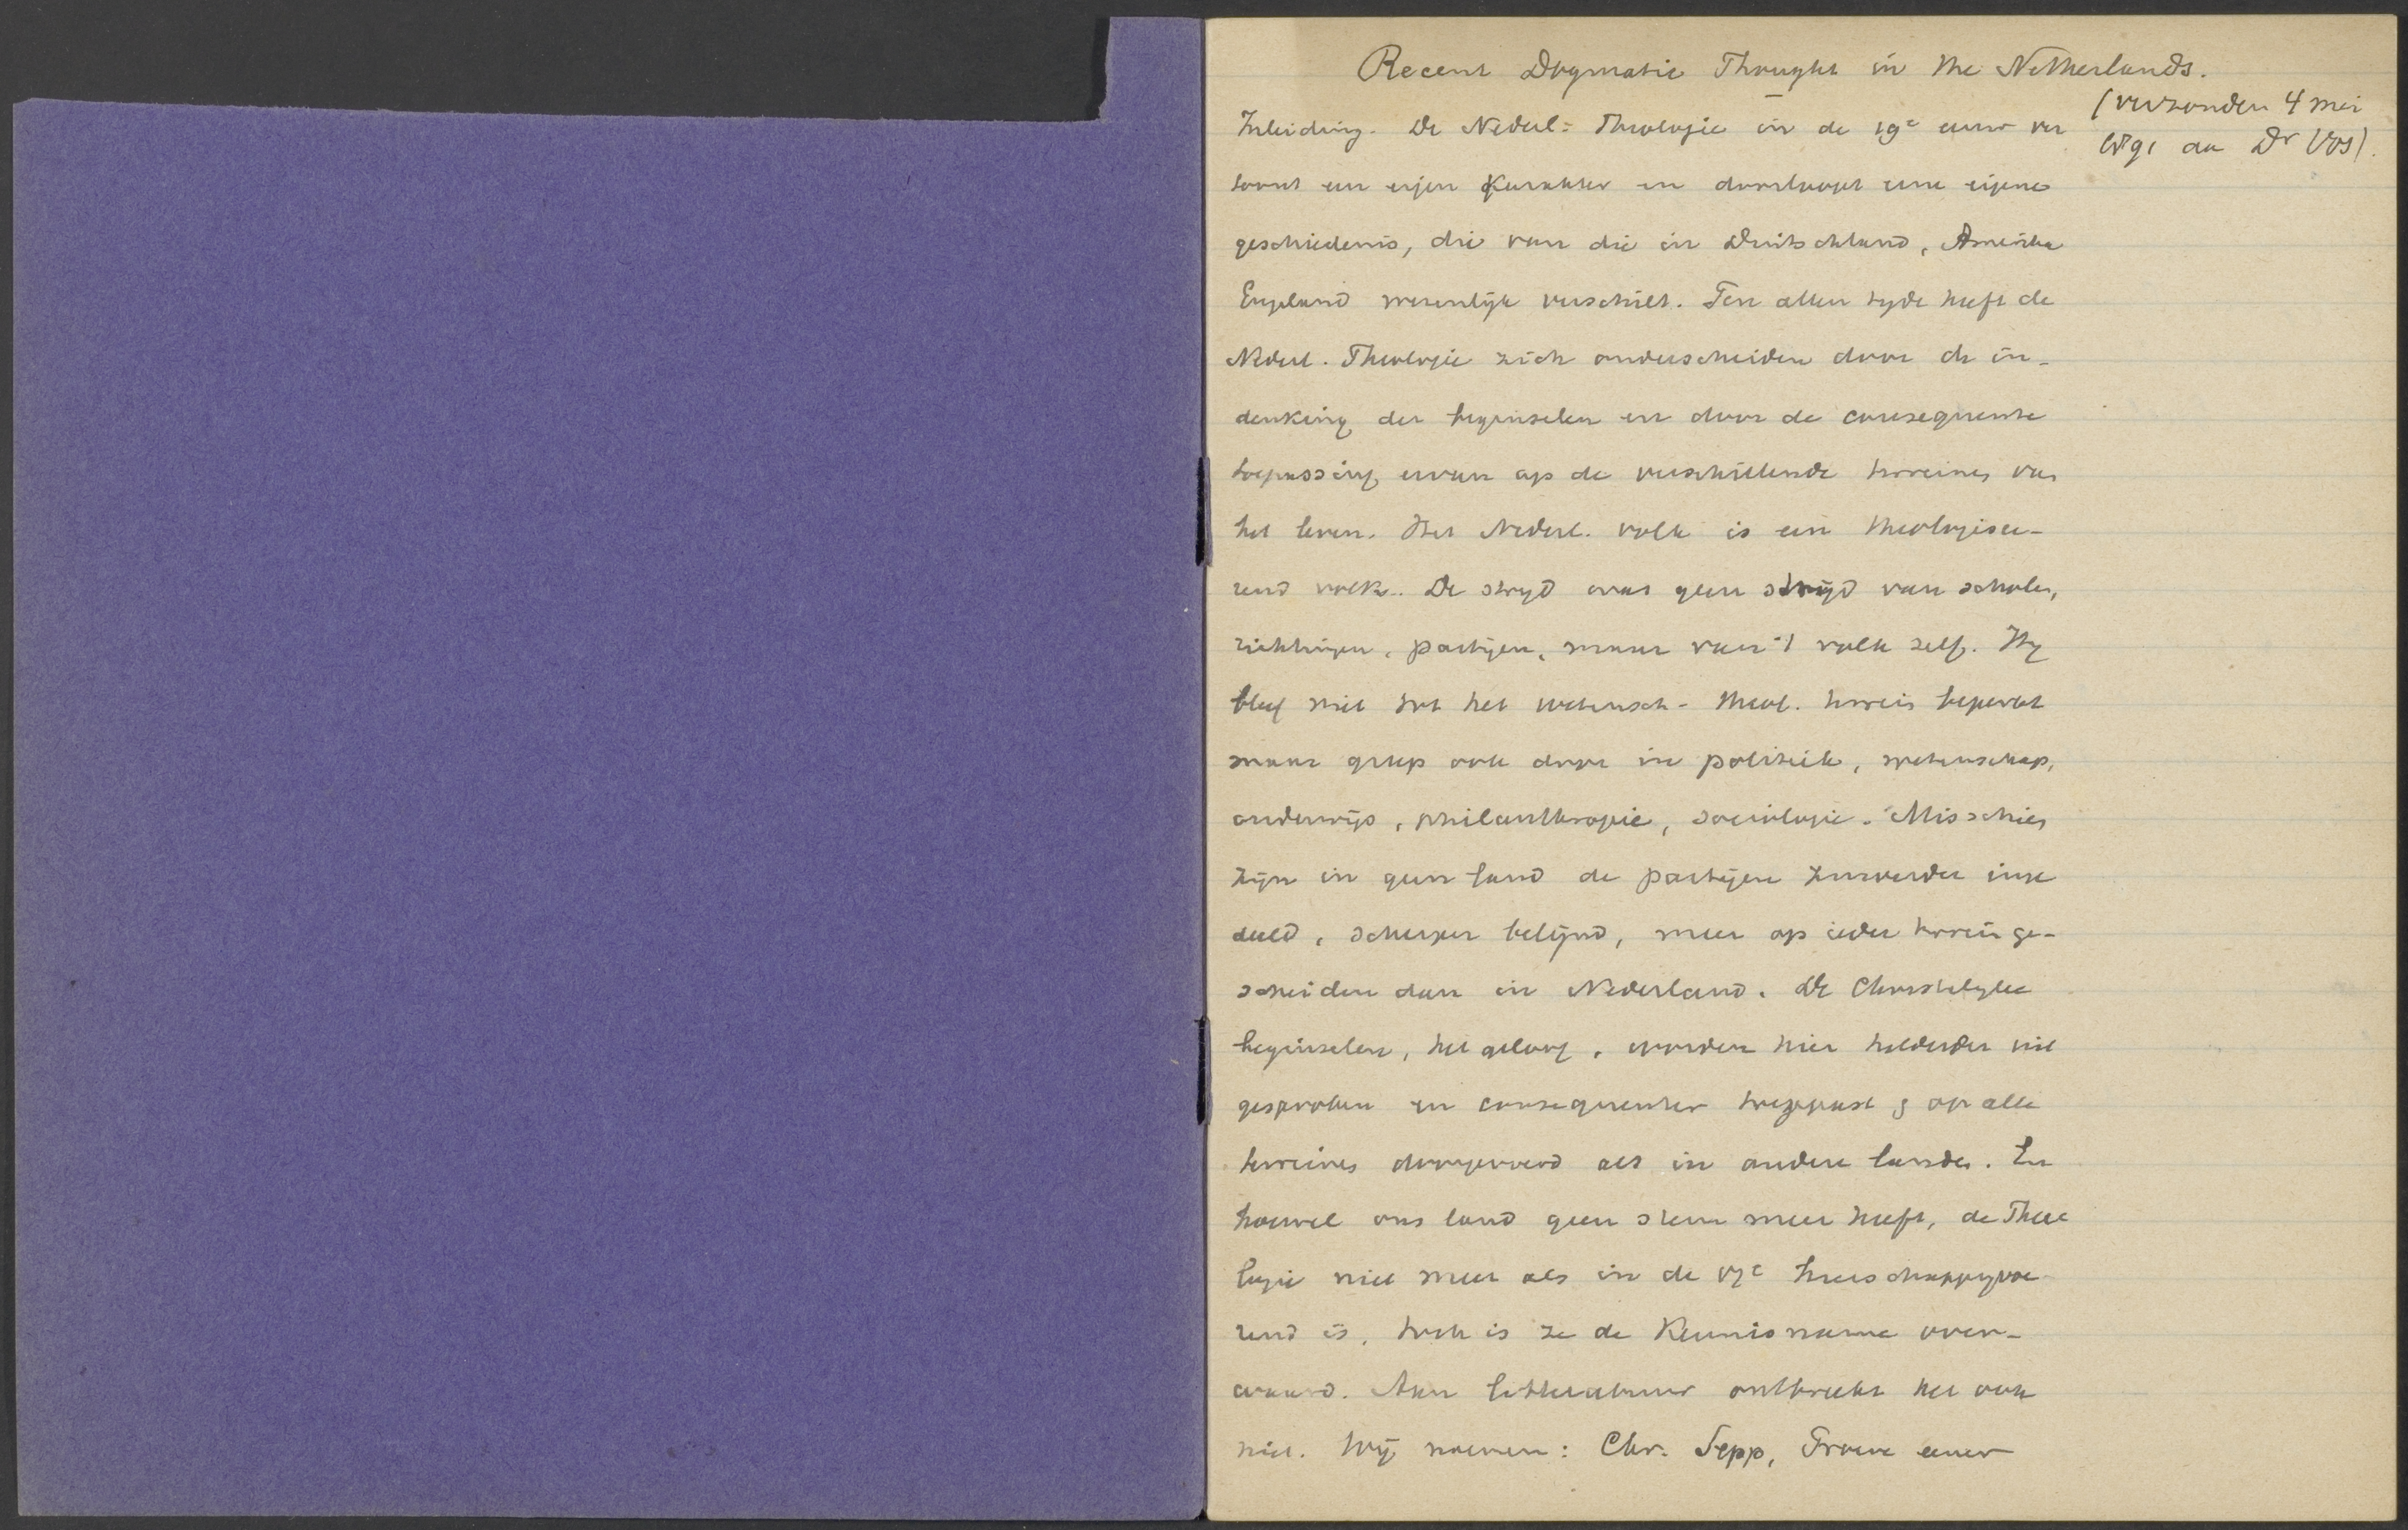 Recent Dogmatic Thought in the Netherlands.
(verzonden 4 mei
1891 aan Dr Vos).
Inleiding. De Nederl. Theologie in de 19e eeuw ver
toont een eigen karakter en doorloopt eene eigene
geschiedenis, die van die in Duitschland, Amerika
Engeland wezenlijk verschilt. Ten allen tijde heeft de
Nederl. Theologie zich onderscheiden door de in-
denking der beginselen en door de consequente
toepassing ervan op de verschillende terreinen van
het leven. Het Nederl. volk is een theologisee-
rend volk. De strijd was geen strijd van scholen,
richtingen, partijen, maar van 't volk zelf. Hij
bleef niet tot het wetensch-theol. terrein beperkt
maar greep ook door in politiek, wetenschap,
onderwijs, philanthropie, sociologie. Misschien
zijn in geen land de partijen zuiverder inge
deeld, scherper belijnd, meer op ieder terrein ge-
scheiden dan in Nederland. De Christelijke
beginselen, het geloof, worden hier helderder uit
gesproken en consequenter toegepast & op alle
terreinen doorgevoerd als in andere landen. En
hoewel ons land geen stem meer heeft, de Theo
logie niet meer als in de 17e heerschappijvoe
rend is, toch is ze de kennisname over-
waard. Aan litteratuur ontbreekt het ook
niet. Wij noemen: Chr. Sepp, Proeve eener